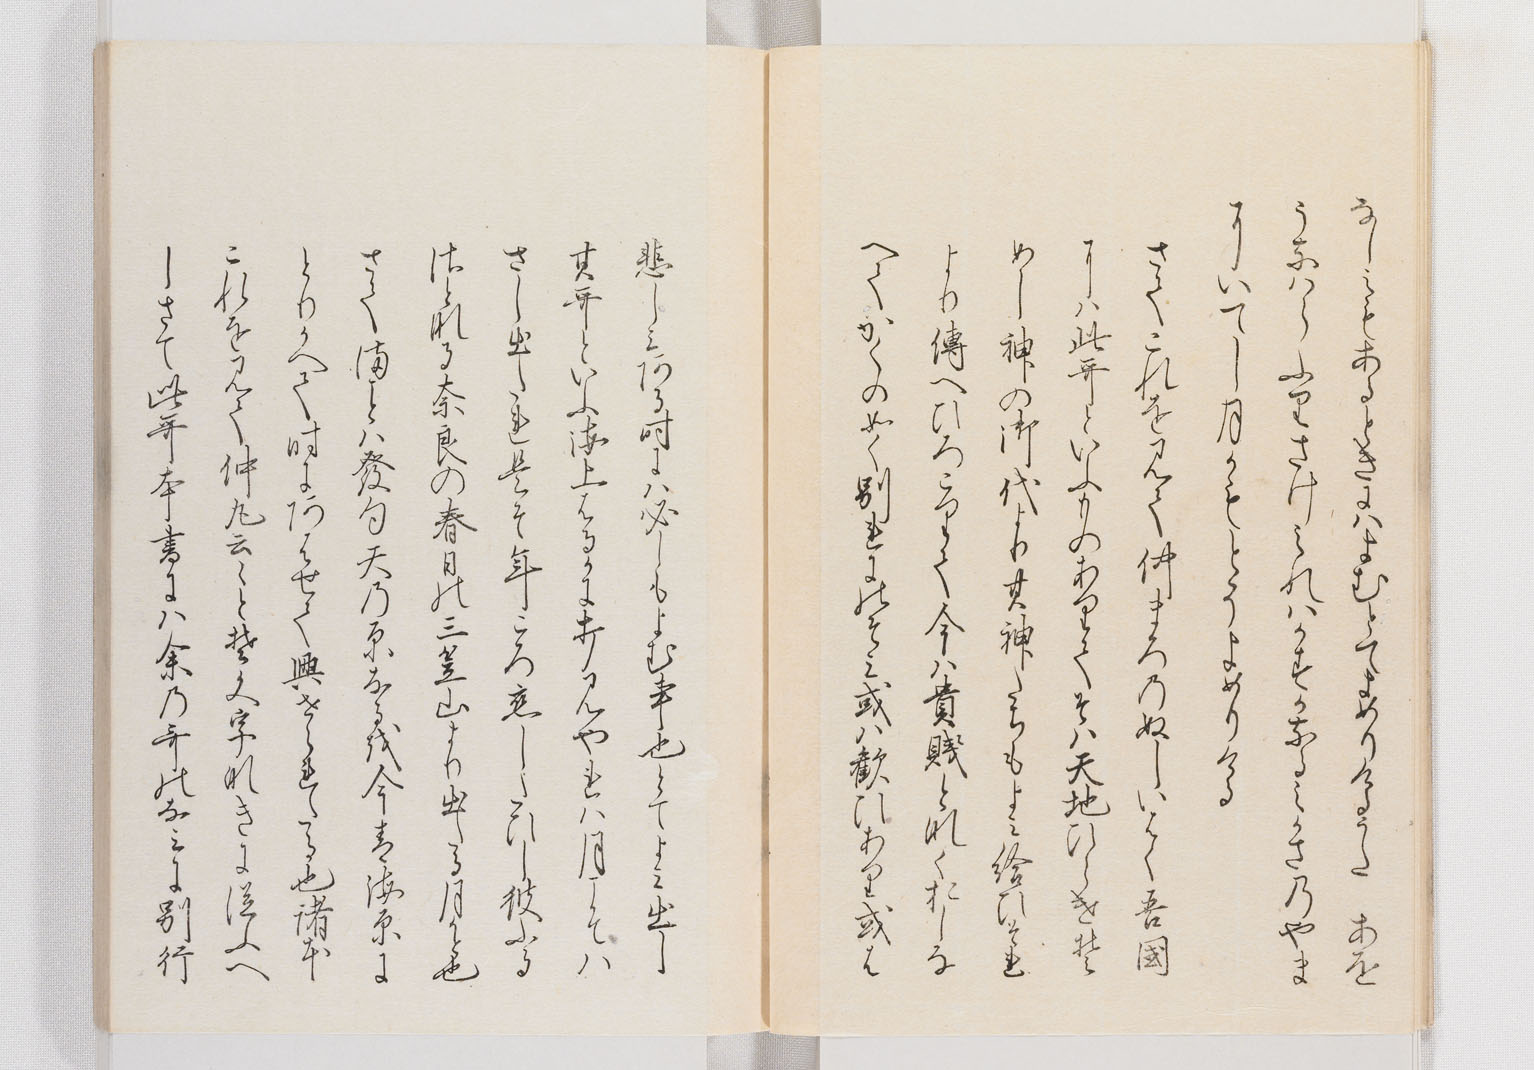 なしみもあるときにはよむとてよめりけるうた　あを
うなはらふりさけみれはかすかなるみかさのやま
にいてし月かもとそよめりける
さてこれを見て仲まろのぬしいはく吾國
には此哥といふものありてそは天地ひらき
めし神の御代より其神たちもよみ給ひそれ
より傳へひろこりて今は貴賤となくおしな
へてかくのめく別れにのそみ或は歓ひあり或は
悲しみある時には必しもよむ事也とてよみ出し
其哥といふ海上はるかに見やれは月
さし出たれ是そ年ころ恋したひし彼ふる
さとなる奈良の春日の三笠山より出たる月かも也
さて
は發句天乃原なるを今青海原に
とりかへて時にあはせて興せられたる也諸本
これを見て仲丸云々と
文字なきに従ふへ
しさて此哥本書には余の哥のなみに別行